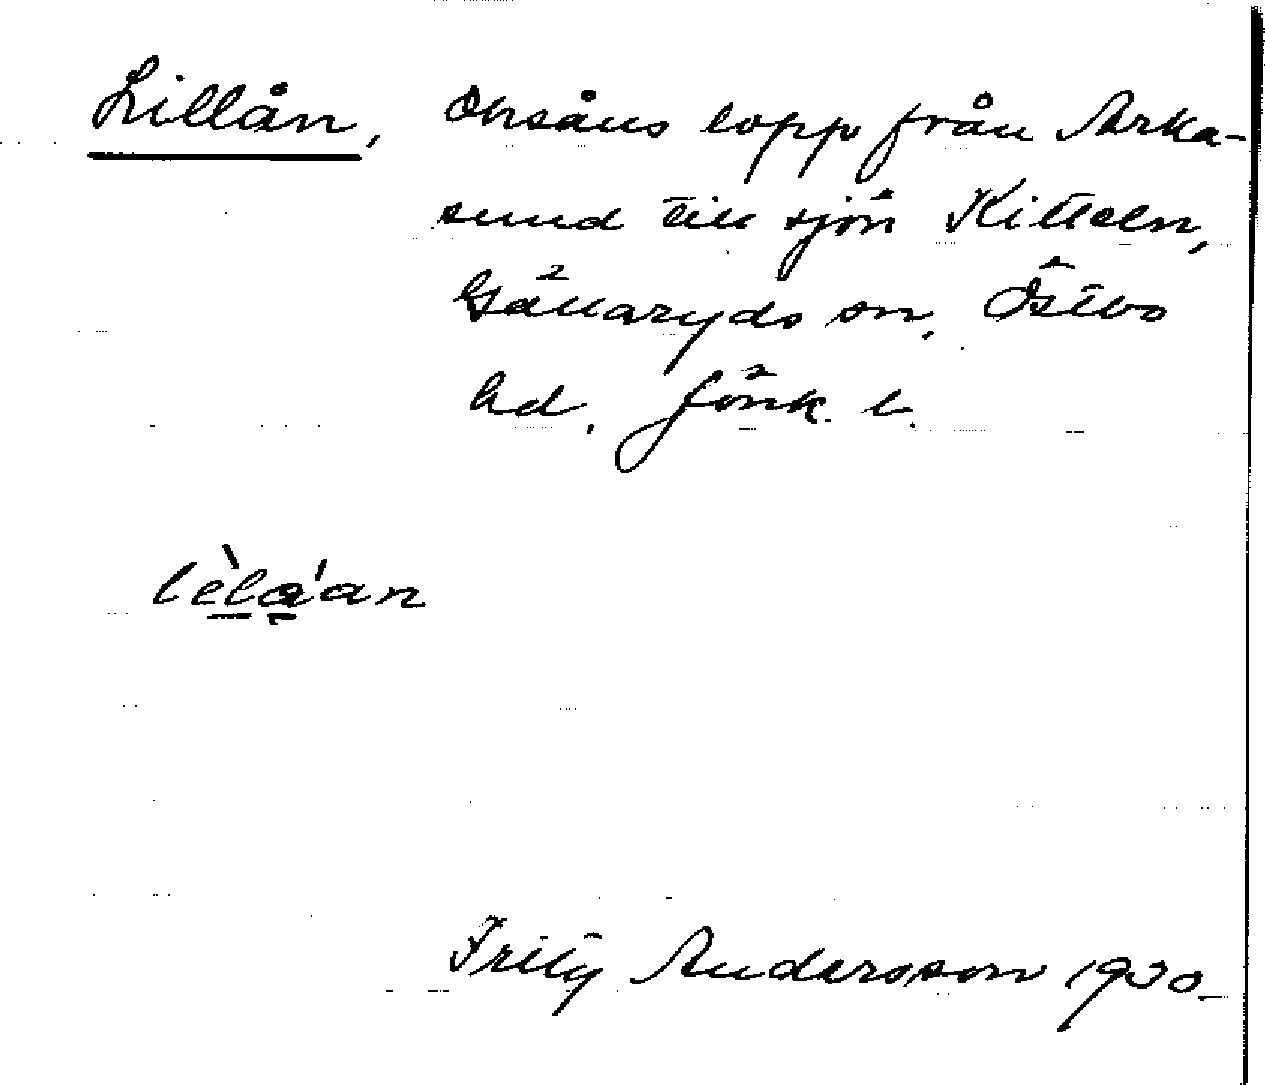 Lillån, Ohsåns lopp från Arka-
sund till sjön Kitteln,
Gällaryds sn, Östbo
hd, Jönk. l.
lèlá̱an
Fritz Andersson 1930